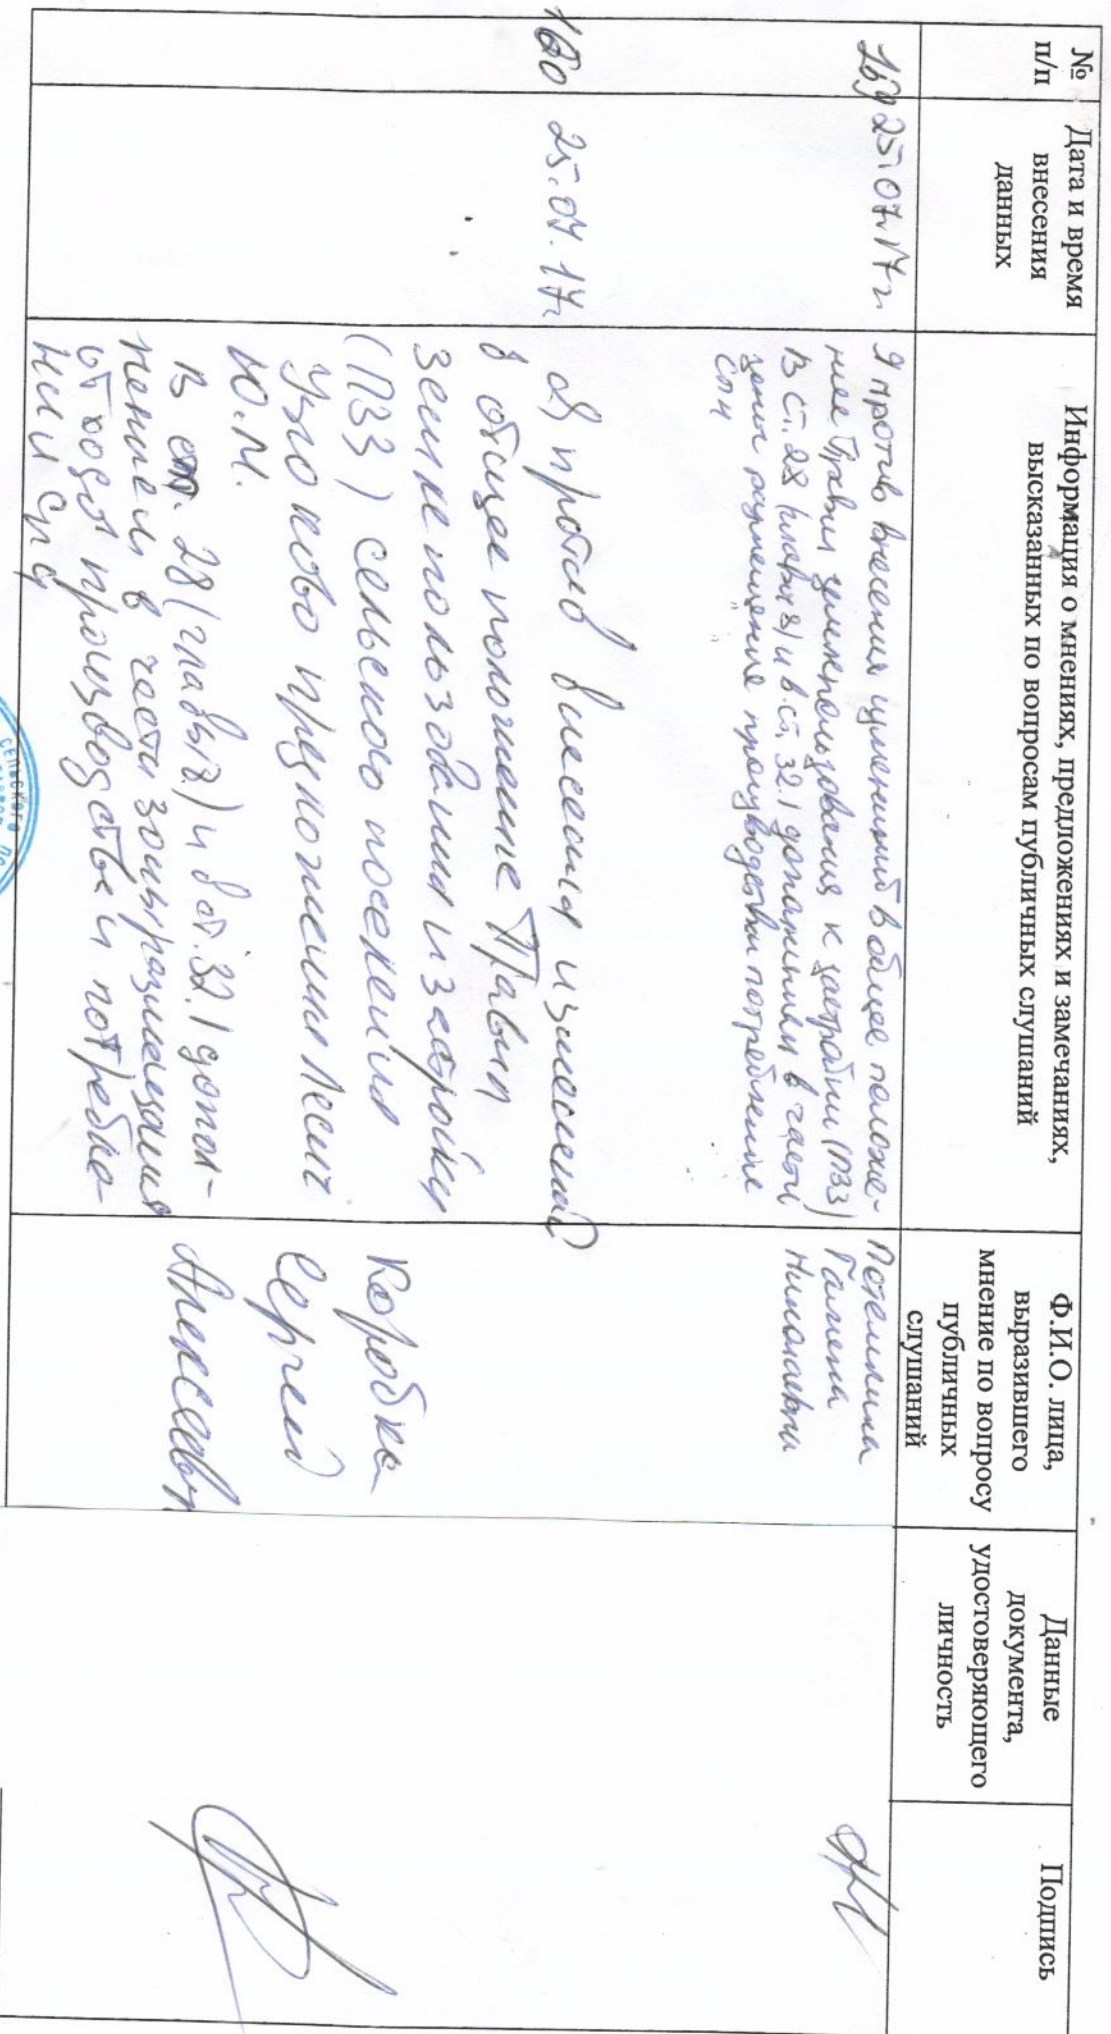 №
п/п
Дата и время
внесения
данных
Информация о мнениях, предложениях и замечаниях,
высказанных по вопросам публичных слушаний
Ф.И.О. лица,
выразившего
мнение по вопросу
публичных
слушаний
Данные
документа,
удостоверяющего
личность
Подпись
25.07.17г.
Я против внесения изменений в общее положе-
ние Правил землепользования к застройки (ПЗЗ)
в ст. 28 (глава 8) и в ст. 32.1 дополнением в части
размещения производства потребление
Потемкина
Галина
160
25.07.17г
Я против внесения изменений
в общее положение Правил
землепользования и застройки
(ПЗЗ) сельского поселения
Узюково предложения
Ю.М.
в ст. 28 (глава 8) и в ст. 32.1 допол-
нением в части зоны размещения
отходов производства и потребле-
нии СП4
Коробка
Сергей
Алексеевич
СЕЛЬСКОГО